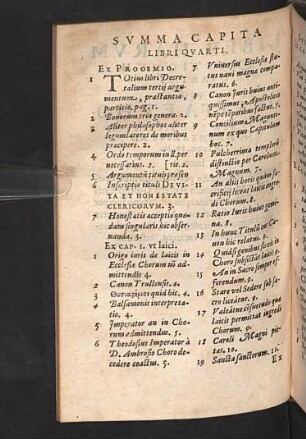 SVMMA CAPITA
LIBRI QVARTI.
EX PROOEMIO.
1 Totius libri Decre-
talium tertij argu-
mentum, præstantia,
partitio. pag. 1.
2 Bonorum tria genera. 2.
3 Aliter philosophos aliter
legumlatores de moribus
præcipere. 2.
4 Ordo temporum in ll. per
necessarius. 2.
5 Argumentū tituli præsen
6 Inscriptio tituli DE VI-
TA ET HONESTATE
CLERICORVM. 3.
7 Honestatis acceptio quæ-
dam singularis hîc obser-
uanda. 3.
EX CAP. 1. vt laici.
1 Origo iuris de laicis in
Ecclesiæ Chorum nō ad-
mittendis 4.
2 Canon Trullensis. 4.
3 quid hîc. 4.
4 Balsamonis interpreta-
tio. 4.
5 Imperator an in Cho-
rum admittendus. 5.
6 Theodosius Imperator à
D. Ambrosio Choro de-
cedere coactus. 5.
7 Vniuersus Ecclesiæ sta-
tus nani magnæ compa-
ratus. 6.
8 Canon huius anti-
quissimus, Apostolorū
nepotibus factus. 7.
9 Concilium Magunti-
num ex quo Capitulum
hoc. 7.
10 Pulcherrima templi
distinctio per Carolum
Magnum. 7.
11 An alij horis
laici
Chorum. 8.
12 Ratio Iuris
num. 8.
13 In hunc Titulū
non hîc relatus. 9.
14 Quidsi
Choro subsistat laicus
15 An in Sacro semper
ferendum. 9.
16 Stare vel Sedere sub sa-
cro liceat. 9.
17 quo
laicis permittat ingredi
Chorum. 9.
18 Caroli Magni pie-
tas. 10.
19 Sancta sanctorum. 10.
EX